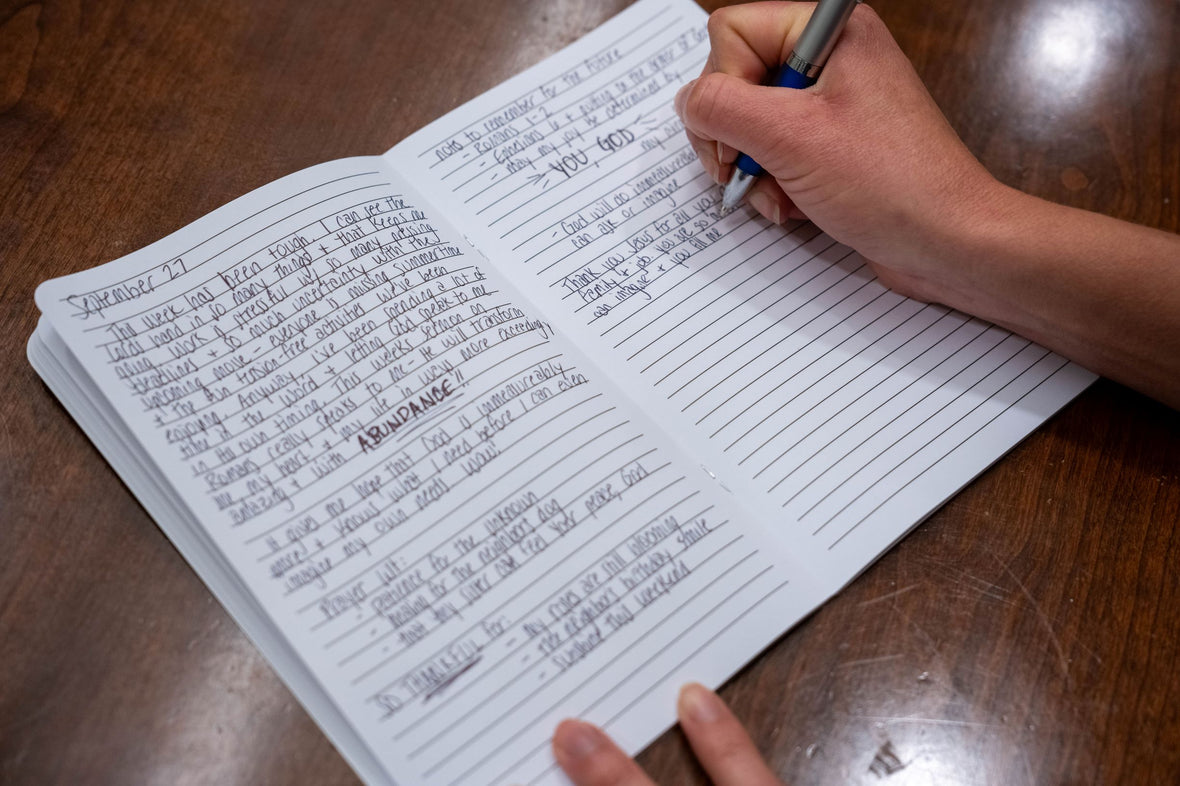 September 27
This week has been tough. I can see the
Lord's hand in so many things + that keeps me
going. Work is stressful w/ so many pressing
deadlines + so much uncertainty with the
upcoming move - everyone is missing summertime
+ the fun tension-free activities we've been
enjoying. Anyway, I've been spending a lot of
time in the Word + letting God speak to me
in its own timing. This weeks sermon on
Romans really speaks to me - He will transform
me, my heart, + my life in way more exceedingly
amazing + with ABUNDANCE!!
It gives me hope that God is immeasureably
more! + knows what I need before I can even
imagine my own needs. Wow!
Prayer list:
- patience for the unknown
- healing for the neighbors dog
- that my sister can feel your peace, God
SO THANKFUL for:
- my roses are still blooming
- the neighbors birthday smile
- sunshine this weekend
nots to remember for the future
- Romans 1-2
- Ephesians 6 + putting on the armor of God
- may my joy be determined by
YOU, GOD
my
- God will do immeasureably
can ask or imagine
Thank you Jesus for all you
family + job. you are so
can imagine + you fill me